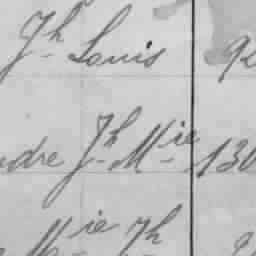 Jh Louis 9
ndre Jh Mie 130
Mie Jh